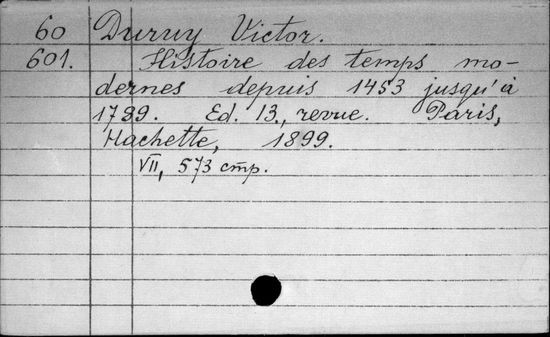 60 Duruy Victor.
601. Histoire des temps mo-
dernes depuis 1453 jusqu'à
1789. Ed. 13., revue. Paris,
Hachette, 1899.
VII, 573 cmp.